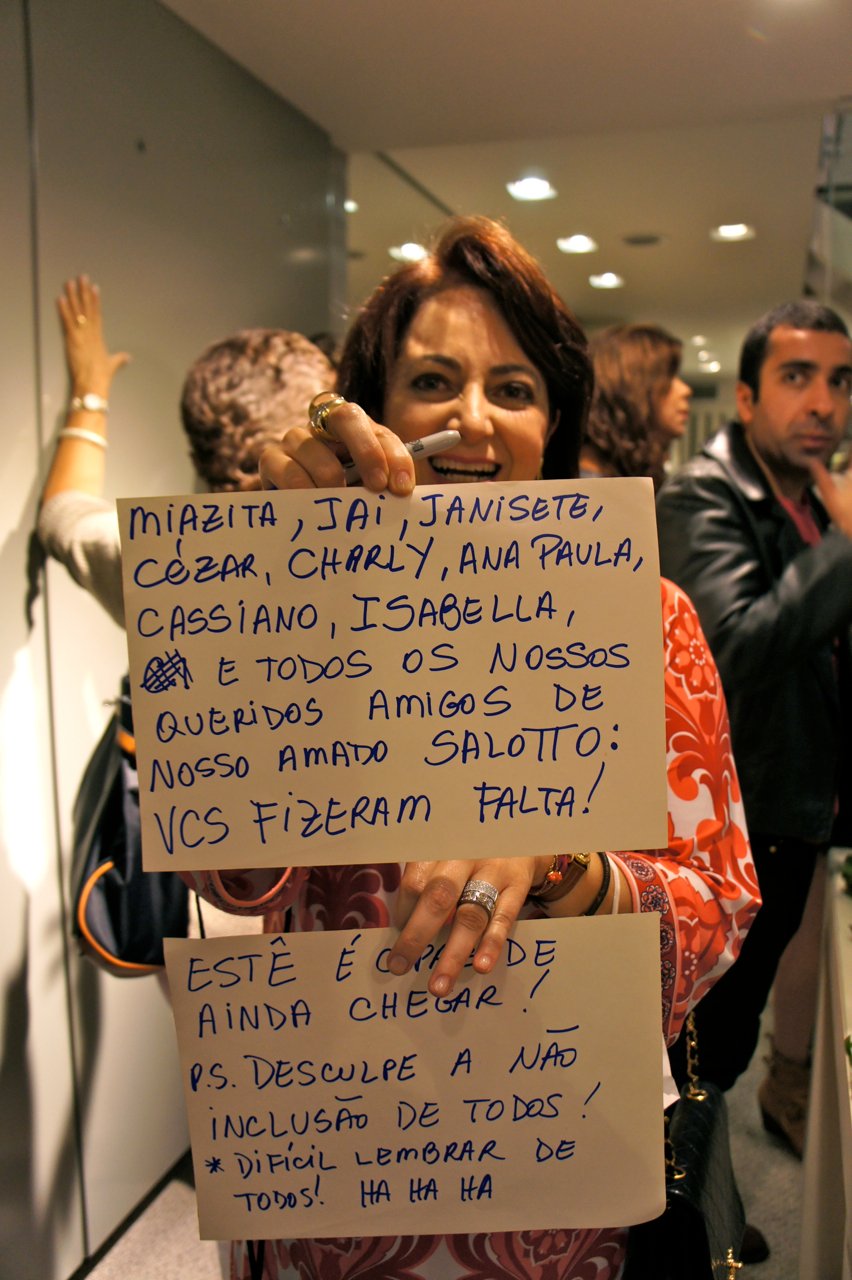 MIAZITA, JAI, JANISETE,
CÉZAR, CHARLY, ANA PAULA,
CASSIANO, ISABELLA,
E TODOS OS NOSSOS
QUERIDOS AMIGOS DE
NOSSO AMADO SALOTTO:
VCS FIZERAM FALTA!
ESTÊ É DE
AINDA CHEGAR!
P.S. DESCULPE A NÃO
INCLUSÃO DE TODOS!
* DIFÍCIL LEMBRAR DE
TODOS! HA HA HA